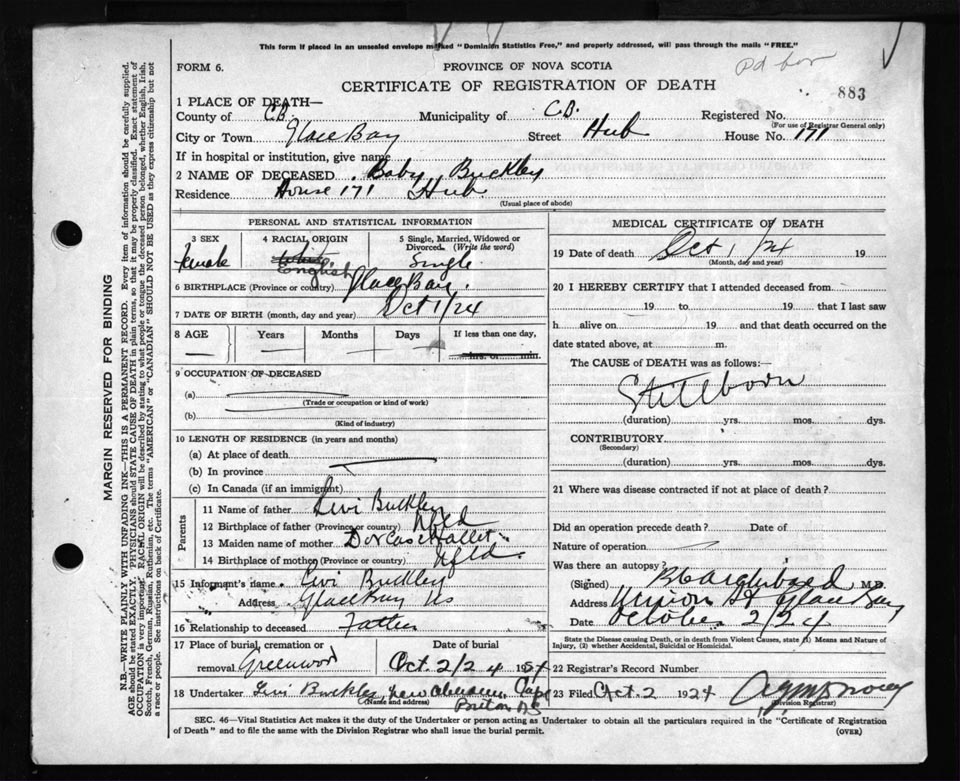 This form if placed in an unsealed envelope marked "Dominion Statistics Free," and properly addressed, will pass through the mails "FREE."
FORM 6.
PROVINCE OF NOVA SCOTIA
CERTIFICATE OF REGISTRATION OF DEATH
883
1 PLACE OF DEATH—
County of C.B. Municipality of C.B. Registered No.
(For use of Registrar General only)
City or Town Glace Bay Street Hub House No. 171
If in hospital or institution, give name
2 NAME OF DECEASED Baby Buckley
Residence House 171 Hub
(Usual place of abode)
PERSONAL AND STATISTICAL INFORMATION
3 SEX 4 RACIAL ORIGIN 5 Single, Married, Widowed or Divorced. (Write the word)
Female English Single
6 BIRTHPLACE (Province or country) Glace Bay.
7 DATE OF BIRTH (month, day and year) Oct 1/24
8 AGE Years Months Days If less than one day,
hrs. or min.
9 OCCUPATION OF DECEASED
(a)
(Trade or occupation or kind of work)
(b)
(Kind of industry)
10 LENGTH OF RESIDENCE (in years and months)
(a) At place of death
(b) In province
(c) In Canada (if an immigrant)
Parents
11 Name of father Levi Buckley
12 Birthplace of father (Province or country) Nfld
13 Maiden name of mother Dorcas Hallett
14 Birthplace of mother (Province or country) Nfld.
15 Informant's name Levi Buckley
Address Glace Bay NS
16 Relationship to deceased Father
17 Place of burial, cremation or Date of burial
removal Greenwood Oct. 2/24 1924
18 Undertaker Levi Buckley, Cape
(Name and address) Breton NS
MEDICAL CERTIFICATE OF DEATH
19 Date of death Oct 1/24 19
(Month, day and year)
20 I HEREBY CERTIFY that I attended deceased from
19 to 19 that I last saw
h alive on 19 and that death occurred on the
date stated above, at m.
The CAUSE of DEATH was as follows:—
Stillborn
(duration) yrs. mos. dys.
CONTRIBUTORY
(Secondary)
(duration) yrs. mos. dys.
21 Where was disease contracted if not at place of death?
Did an operation precede death? Date of
Nature of operation
Was there an autopsy?
(Signed) Archibald M.D.
Address Union St Glace Bay
Date October 2/24
State the Disease causing Death, or in death from Violent Causes, state (1) Means and Nature of Injury, (2) whether Accidental, Suicidal or Homicidal.
22 Registrar's Record Number
23 Filed Oct. 2 1924
(Division Registrar)
SEC. 46—Vital Statistics Act makes it the duty of the Undertaker or person acting as Undertaker to obtain all the particulars required in the "Certificate of Registration
of Death" and to file the same with the Division Registrar who shall issue the burial permit.
(OVER)
MARGIN RESERVED FOR BINDING
N.B.—WRITE PLAINLY WITH UNFADING INK—THIS IS A PERMANENT RECORD. Every item of information should be carefully supplied.
AGE should be stated EXACTLY. PHYSICIANS should STATE CAUSE OF DEATH in plain terms, so that it may be properly classified. Exact statement of
OCCUPATION is very important. RACIAL ORIGIN will be described by stating to what people or tongue the deceased person belonged, whether English, Irish,
Scotch, French, German, Russian, Ruthenian, etc. The terms "AMERICAN" or "CANADIAN" SHOULD NOT BE USED as they express citizenship but not
a race or people. See instructions on back of Certificate.